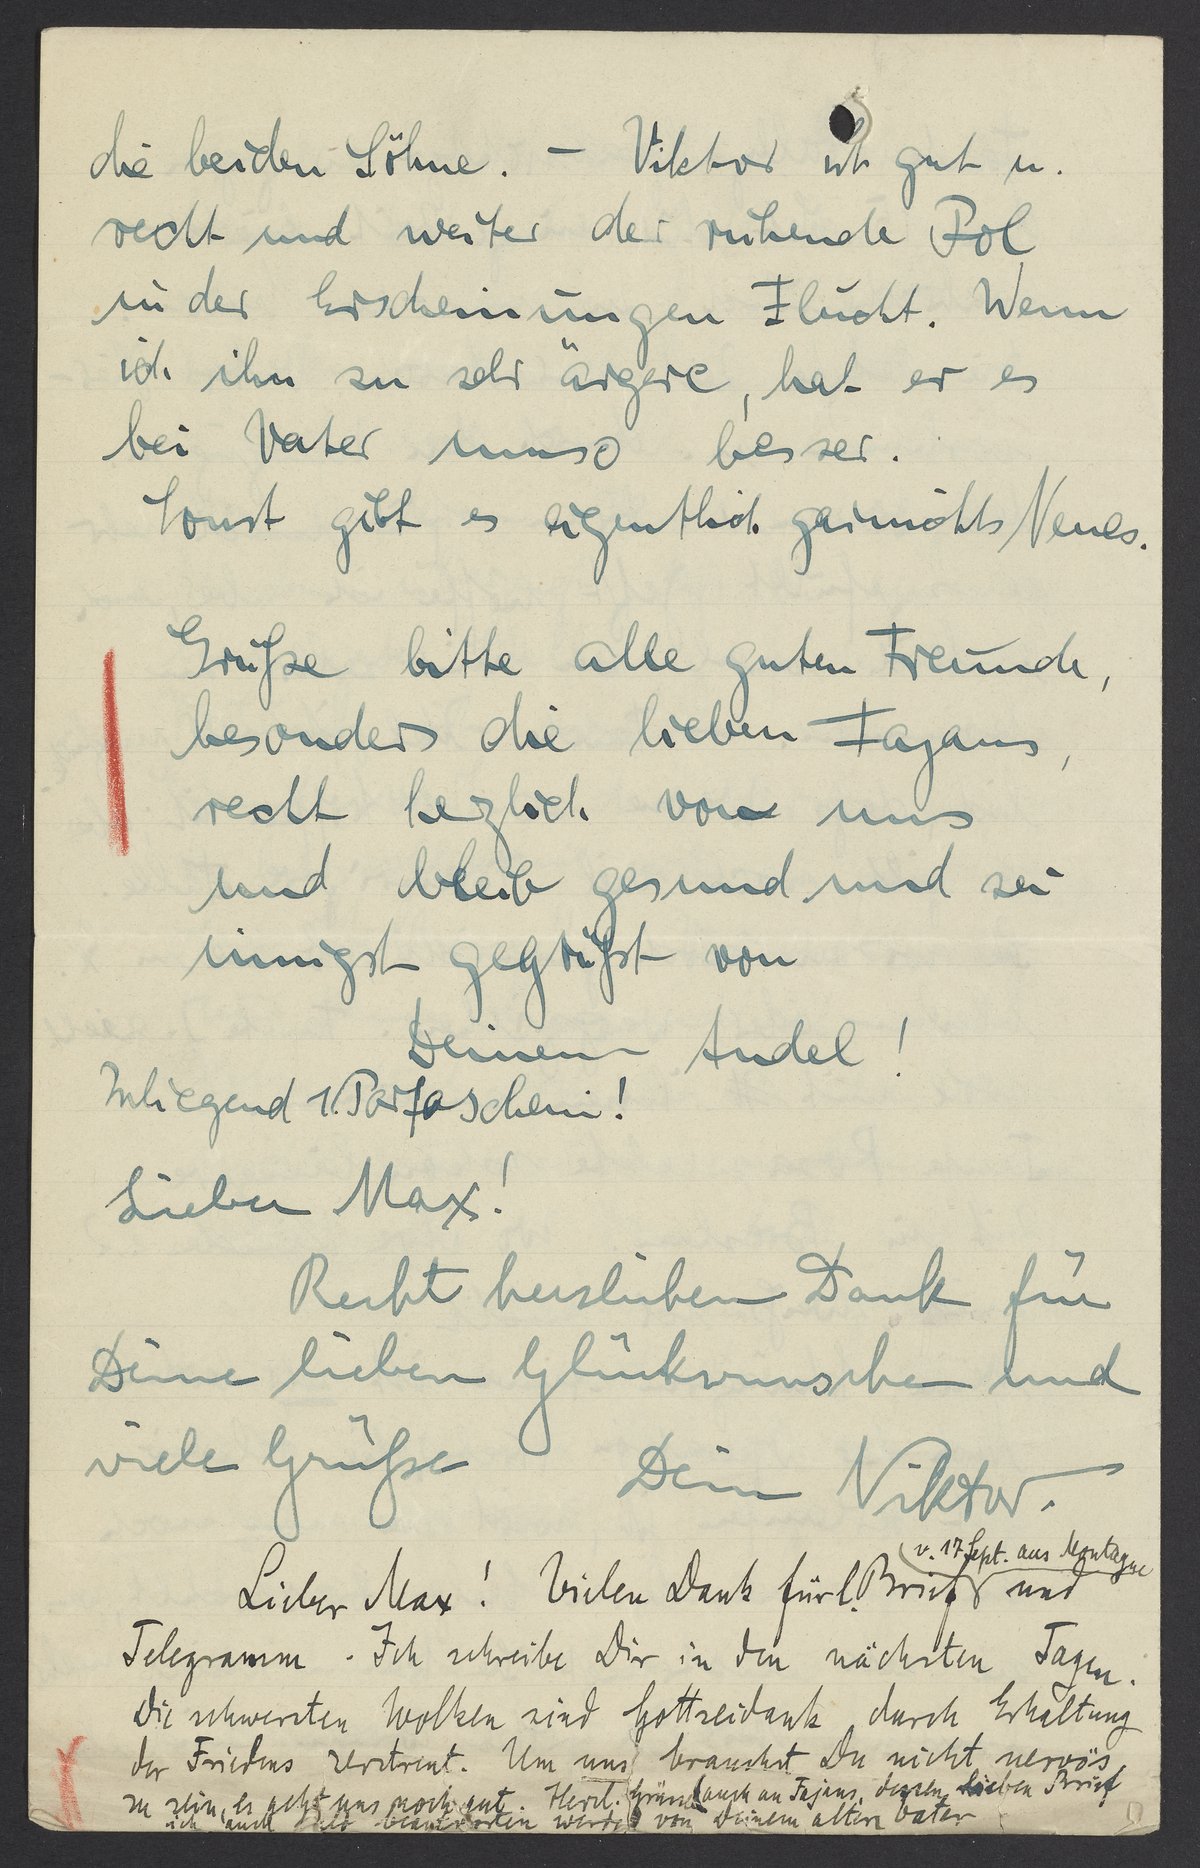 die beiden Söhne. – Viktor ist gut u.
recht und weiter der ruhende Pol
in der Erscheinungen Flucht. Wenn
ich ihn zu sehr ärgere, hat er es
bei Vater umso besser.
Sonst gibt es eigentlich garnichts Neues.
Grüße bitte alle guten Freunde,
besonders die lieben Fajans,
recht herzlich von uns
und bleib gesund und sei
innigst gegrüßt von
Deinem Andel!
Inliegend 1. Portoschein!
Lieber Max!
Recht herzlichen Dank für
Deine lieben Glückwünsche und
viele Grüße Dein Viktor.
v. 17 Sept. aus Montagne
Lieber Max! Vielen Dank für l. Brief und
Telegramm. Ich schreibe Dir in den nächsten Tagen.
Die schwersten Wolken sind Gottseidank durch Erhaltung
des Friedens zerstreut. Um uns brauchst Du nicht nervös
zu sein, es geht uns noch gut. Herzl. Grüsse auch an Fajans, dessen lieben Brief
ich auch bald beantworten werde von Deinem alten Vater